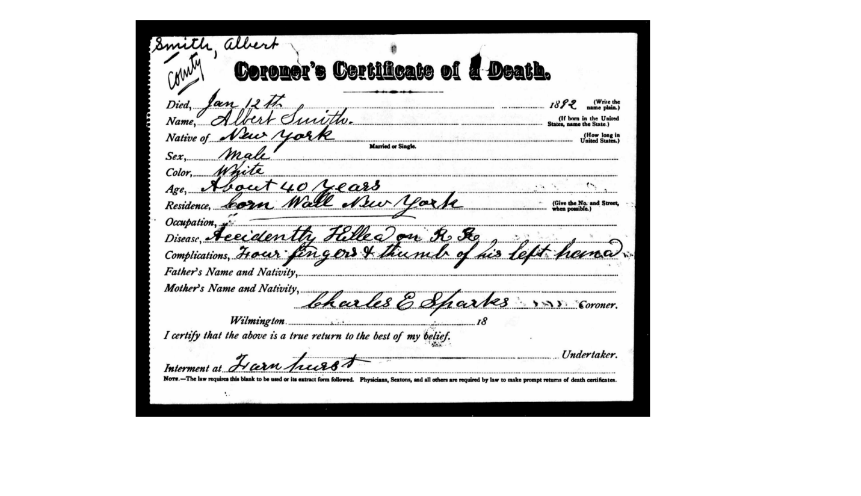 Smith, Albert
County
Coroner's Certificate of a Death.
Died, Jan 12th 1892 (Write the name plain.)
Name, Albert Smith. (If born in the United States, name the State.)
Native of New York (How long in United States.)
Married or Single.
Sex, Male
Color, White
Age, About 40 Years
Residence, born Wall New York (Give the No. and Street, when possible.)
Occupation, "
Disease, Accidently Killed on R. R.
Complications, Four fingers & thumb of his left hand
Father's Name and Nativity,
Mother's Name and Nativity,
Charles E Sparks Coroner.
Wilmington 18
I certify that the above is a true return to the best of my belief.
Undertaker.
Interment at Farnhurst
NOTE.—The law requires this blank to be used or its extract form followed. Physicians, Sextons, and all others are required by law to make prompt returns of death certificates.